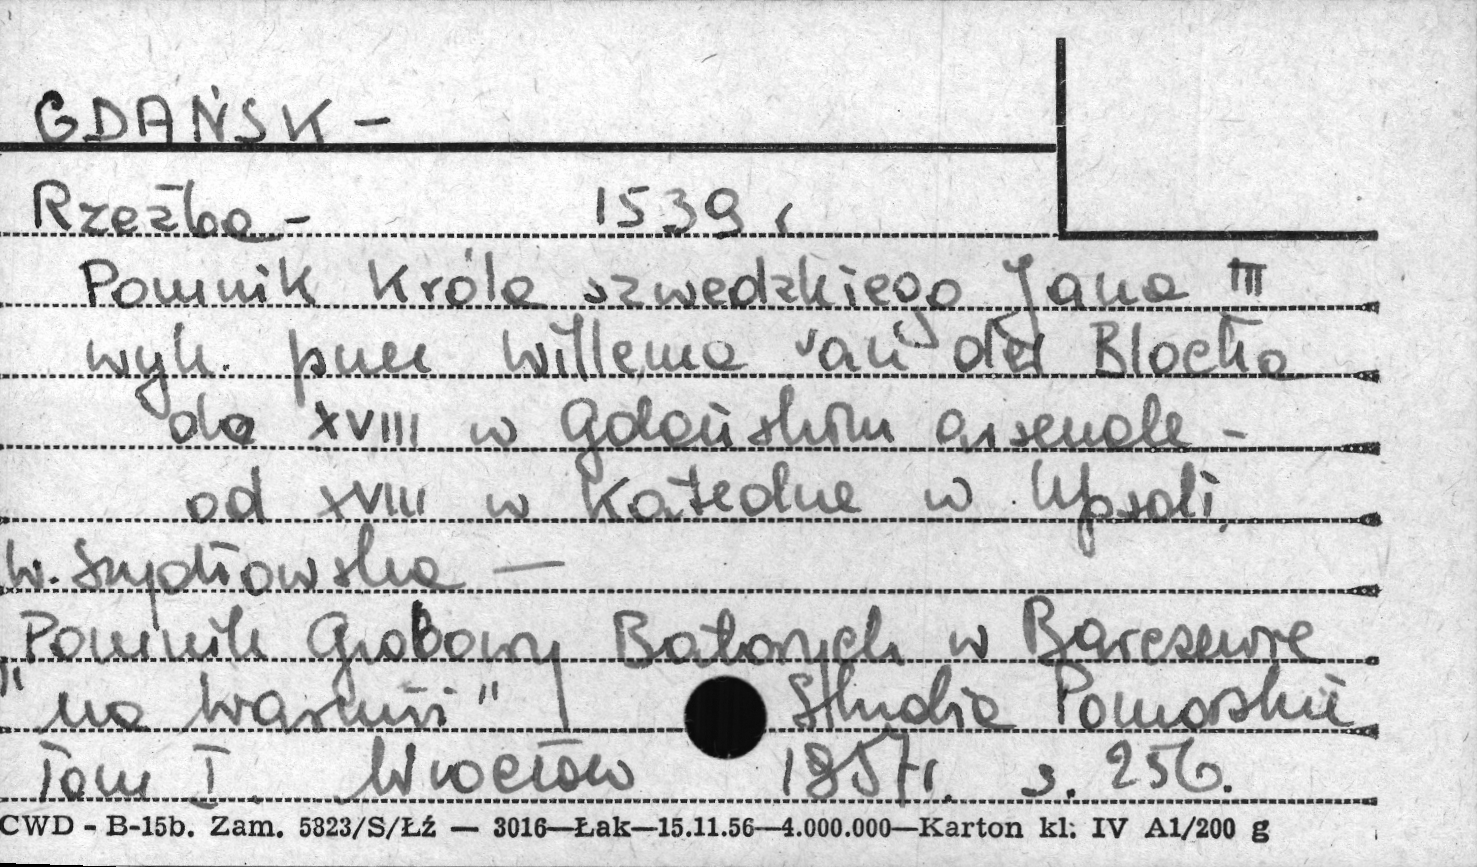 GDAŃSK -
Rzeźba - 1539 r.
Pomnik Króla szwedzkiego Jana III
wyk. przez Willema van den Blocka
do XVIII w Gdańskim arsenale -
od XVIII w Katedrze w Upsali,
W. Szydłowska —
Pomnik Grobowy Batorych w Barczewie
"na Warmii" | Studia Pomorskie
Tom I. Wrocław 1957r. s. 256.
CWD - B-15b. Zam. 5823/S/Łź — 3016—Łak—15.11.56—4.000.000—Karton kl: IV A1/200 g